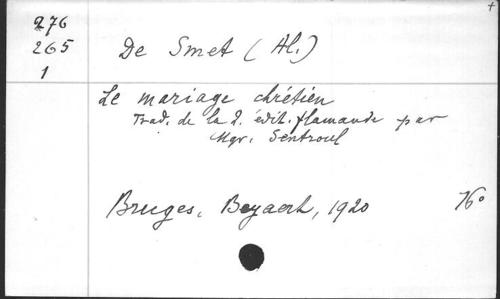 276
265
1
De Smet (Al.)
Le mariage chrétien
Trad. de la 2. édit. flamande par
Mgr. Sentroul
Bruges, Beyaert, 1920